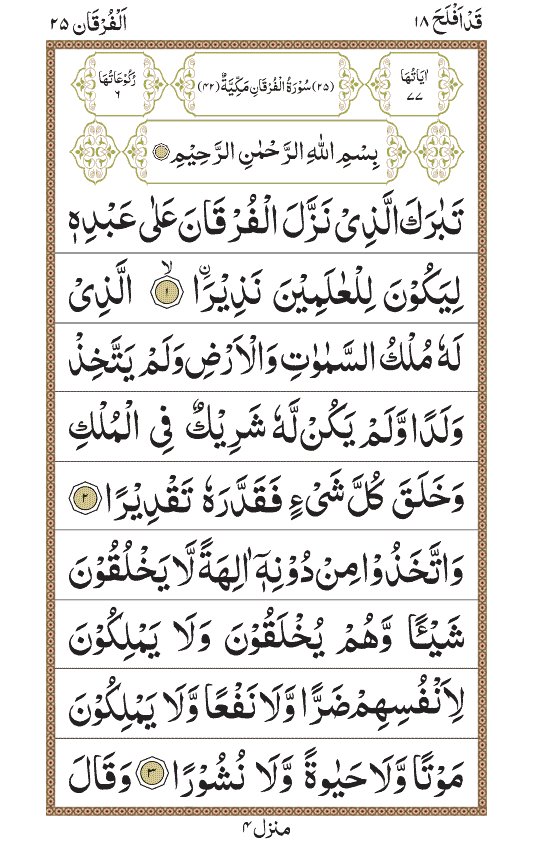 قَدْ اَفْلَحَ ١٨
اَلْفُرْقَان ٢٥
اٰیَاتُهَا ٧٧
(٢٥) سُوْرَةُ الْفُرْقَانِ مَكِّیَّةٌ (٤٢)
رُكُوْعَاتُهَا ٦
بِسْمِ اللّٰهِ الرَّحْمٰنِ الرَّحِیْمِ
تَبٰرَكَ الَّذِیْ نَزَّلَ الْفُرْقَانَ عَلٰی عَبْدِهٖ
لِیَكُوْنَ لِلْعٰلَمِیْنَ نَذِیْرَاۙ ﴿١﴾ اۨلَّذِیْ
لَهٗ مُلْكُ السَّمٰوٰتِ وَالْاَرْضِ وَلَمْ یَتَّخِذْ
وَلَدًا وَّلَمْ یَكُنْ لَّهٗ شَرِیْكٌ فِی الْمُلْكِ
وَخَلَقَ كُلَّ شَیْءٍ فَقَدَّرَهٗ تَقْدِیْرًا ﴿٢﴾
وَاتَّخَذُوْا مِنْ دُوْنِهٖۤ اٰلِهَةً لَّا یَخْلُقُوْنَ
شَیْـًٔا وَّهُمْ یُخْلَقُوْنَ وَلَا یَمْلِكُوْنَ
لِاَنْفُسِهِمْ ضَرًّا وَّلَا نَفْعًا وَّلَا یَمْلِكُوْنَ
مَوْتًا وَّلَا حَیٰوةً وَّلَا نُشُوْرًا ﴿٣﴾ وَقَالَ
منزل ٤